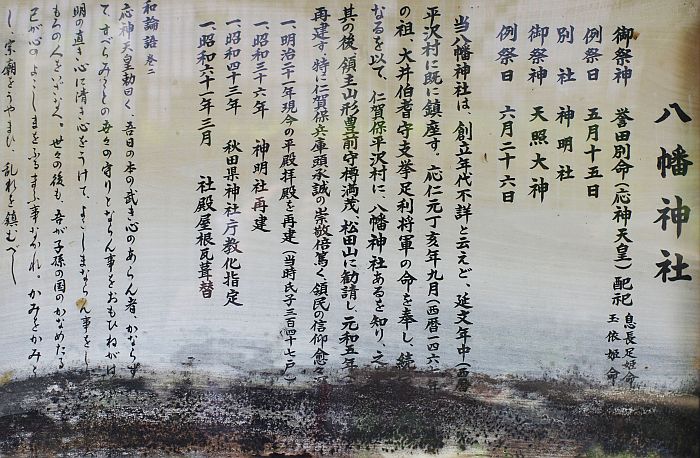 八幡神社
御祭神　誉田別命(応神天皇)配祀 息長足姫命 玉依姫命
例祭日　五月十五日
別社　神明社
御祭神　天照大神
例祭日　六月二十六日
当八幡神社は、創立年代不詳と云えど、延文年中(西暦
平沢村に既に鎮座す。応仁元丁亥年九月(西暦一四六
の祖、大井伯耆守支挙足利将軍の命を奉し、続
なるを以て、仁賀保平沢村に、八幡神社あるを知り、之
其の後、領主山形豊前守樽満茂、松田山に勧請し、元和五年
再建す。特に仁賀保兵庫頭承誠の崇敬倍篤く、領民の信仰愈々
一、明治三十一年現今の平殿拝殿を再建(当時氏子三百四十七戸)
一、昭和三十六年　神明社再建
一、昭和四十三年　秋田県神社庁教化指定
一、昭和六十一年三月　社殿屋根瓦葺替
和論語 巻二
応神天皇勅曰く、吾日の本の武き心のあらん者、かならず
て、すへらみことの世々の守りとならん事をおもひねがは
明の直き心に清き心をうけて、よこしまならん事を
もろの人をいつくしへ。世々の後も、吾が子孫の国のかなめたる
己が心のよこしまをふるまふ事なかれ、かみをかみと
し、宗廟をうやまひ、乱れを鎮むべし